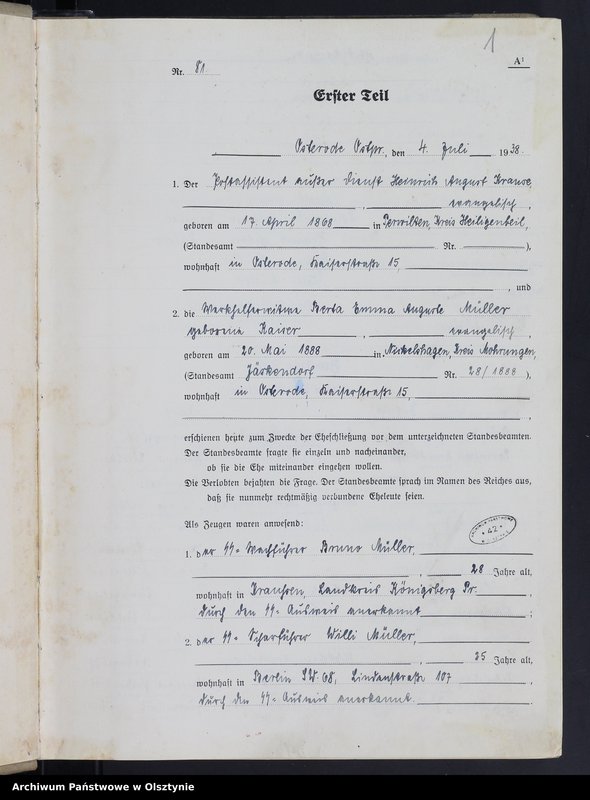 1
A¹
Nr. 81
Erster Teil
Osterode Ostpr., den 4. Juli 1938.
1. Der Postassistent außer Dienst Heinrich August Krause,
, evangelisch,
geboren am 17. April 1868 in Perwilten, Kreis Heiligenbeil,
(Standesamt Nr. ),
wohnhaft in Osterode, Kaiserstraße 15,
, und
2. die Werkhelferwitwe Berta Emma Auguste Müller
geborene Kaiser, evangelisch,
geboren am 20. Mai 1888 in Nickelshagen, Kreis Mohrungen,
(Standesamt Jäskendorf Nr. 28/1888 ),
wohnhaft in Osterode, Kaiserstraße 15,
,
erschienen heute zum Zwecke der Eheschließung vor dem unterzeichneten Standesbeamten.
Der Standesbeamte fragte sie einzeln und nacheinander,
ob sie die Ehe miteinander eingehen wollen.
Die Verlobten bejahten die Frage. Der Standesbeamte sprach im Namen des Reiches aus,
daß sie nunmehr rechtmäßig verbundene Eheleute seien.
Als Zeugen waren anwesend:
42
1. der SS-Wachführer Bruno Müller,
, 28 Jahre alt,
wohnhaft in Landkreis Königsberg Pr.,
durch den SS-Ausweis anerkannt ;
2. der SS-Scharführer Willi Müller,
, 25 Jahre alt,
wohnhaft in Berlin SW. 68, Lindenstraße 107,
durch den SS-Ausweis anerkannt.
Archiwum Państwowe w Olsztynie